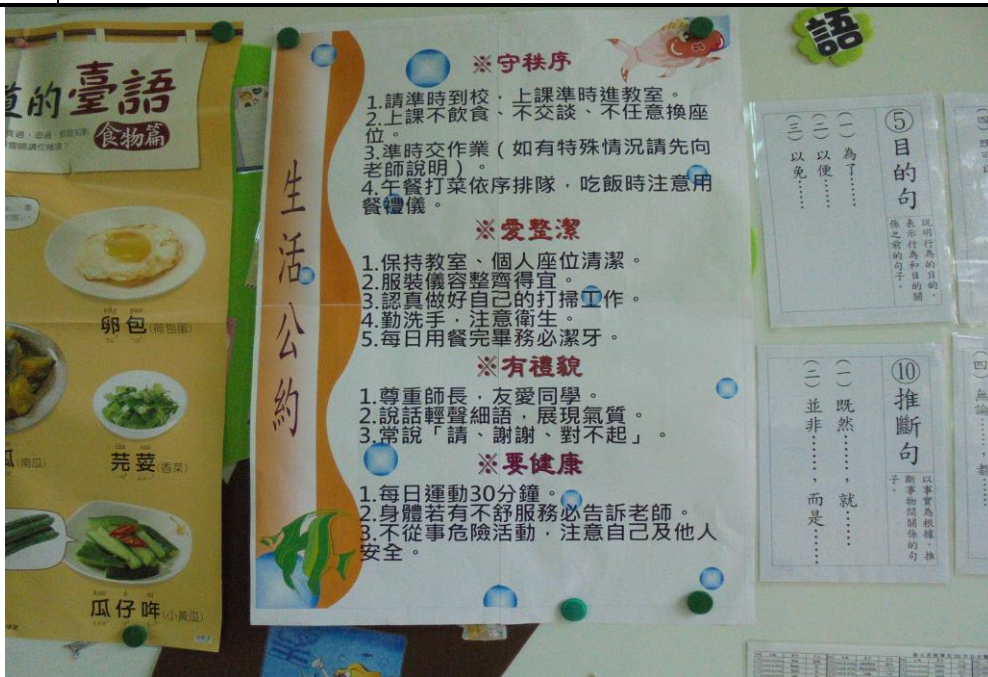 道的臺語
食物篇
卵包(荷包蛋)
芫荽(香菜)
瓜(南瓜)
瓜仔哖(小黃瓜)
生活公約
※守秩序
1.請準時到校，上課準時進教室。
2.上課不飲食、不交談、不任意換座
位。
3.準時交作業（如有特殊情況請先向
老師說明）。
4.午餐打菜依序排隊，吃飯時注意用
餐禮儀。
※愛整潔
1.保持教室、個人座位清潔。
2.服裝儀容整齊得宜。
3.認真做好自己的打掃工作。
4.勤洗手，注意衛生。
5.每日用餐完畢務必潔牙。
※有禮貌
1.尊重師長，友愛同學。
2.說話輕聲細語，展現氣質。
3.常說「請、謝謝、對不起」。
※要健康
1.每日運動30分鐘。
2.身體若有不舒服務必告訴老師。
3.不從事危險活動，注意自己及他人
安全。
語
⑤目的句
說明行為的目的，
表示行為和目的關
係之前的句子。
（一）為了……
（二）以便……
（三）以免……
⑩推斷句
以事實為根據，推
斷事物間關係的句
子。
（一）既然……，就……
（二）並非……，而是……
（四）無論……，都